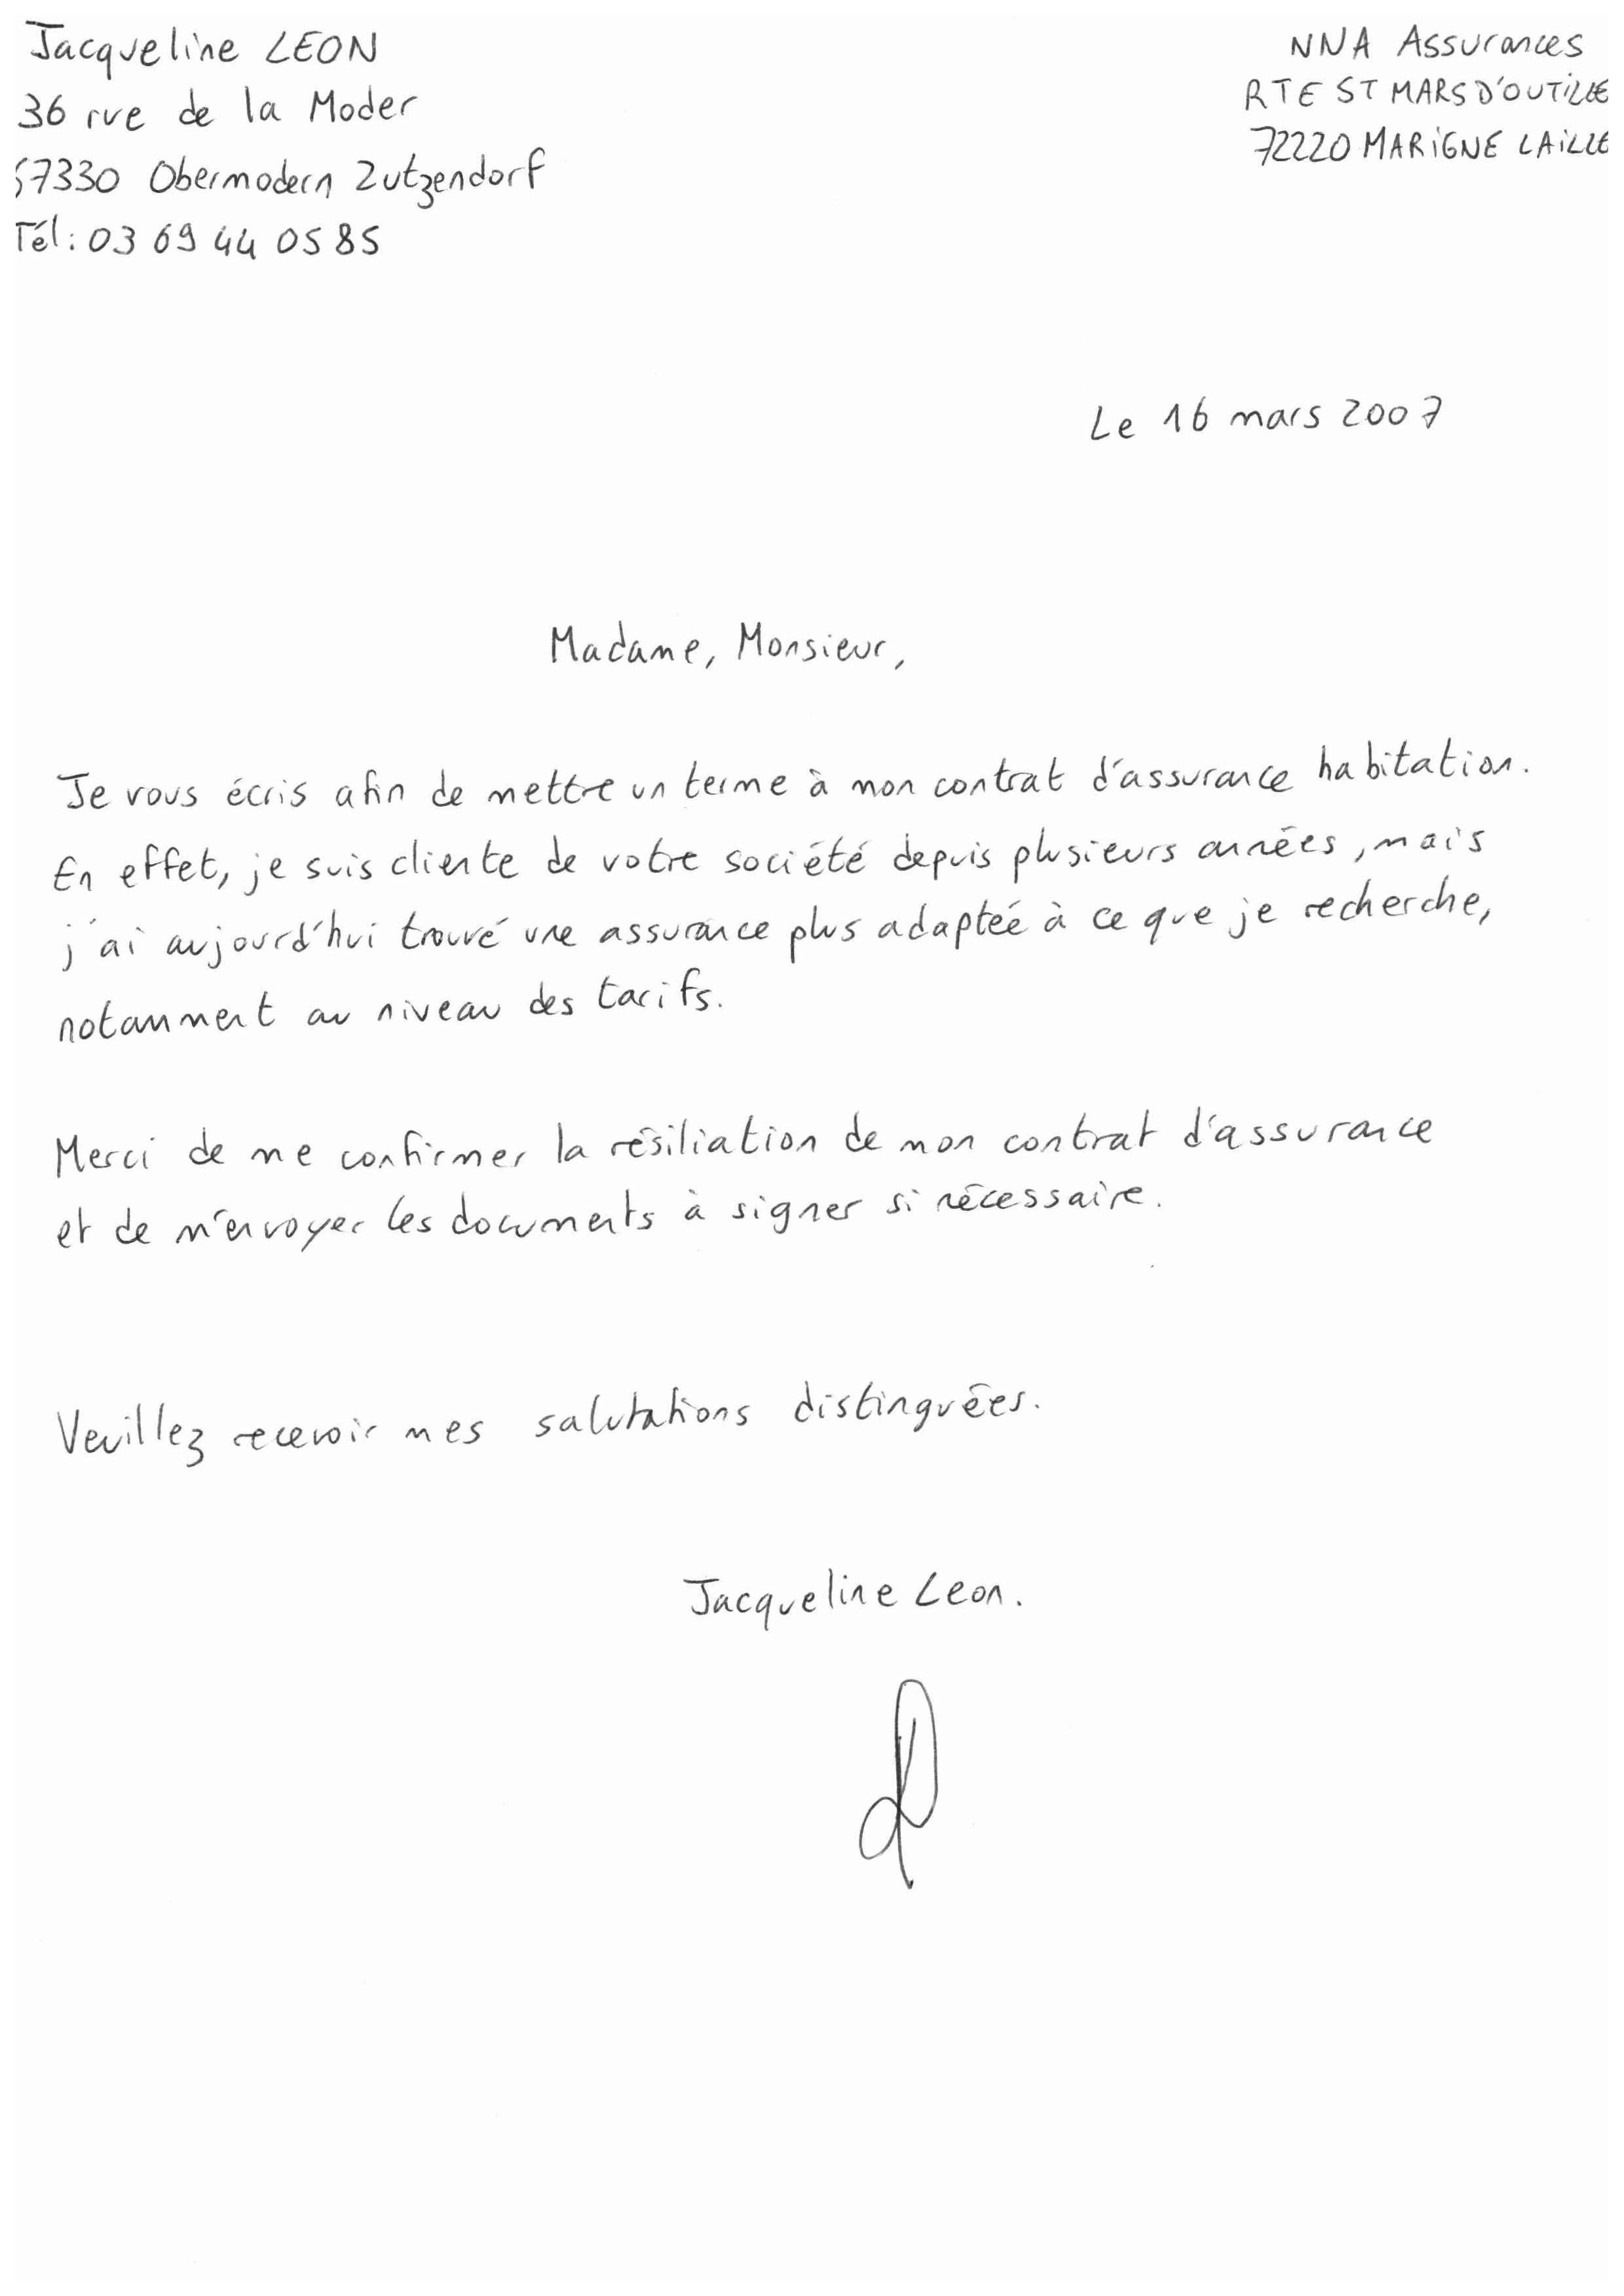 Jacqueline LEON
36 rue de la Moder
57330 Obermodern Zutzendorf
Tél : 03 69 44 05 85
NNA Assurances
RTE ST MARS D'OUTILLE
72220 MARIGNE LAILLE
Le 16 mars 2007
Madame, Monsieur,
Je vous écris afin de mettre un terme à mon contrat d'assurance habitation.
En effet, je suis cliente de votre société depuis plusieurs années, mais
j'ai aujourd'hui trouvé une assurance plus adaptée à ce que je recherche,
notamment au niveau des tarifs.
Merci de me confirmer la résiliation de mon contrat d'assurance
et de m'envoyer les documents à signer si nécessaire.
Veuillez recevoir mes salutations distinguées.
Jacqueline Leon.